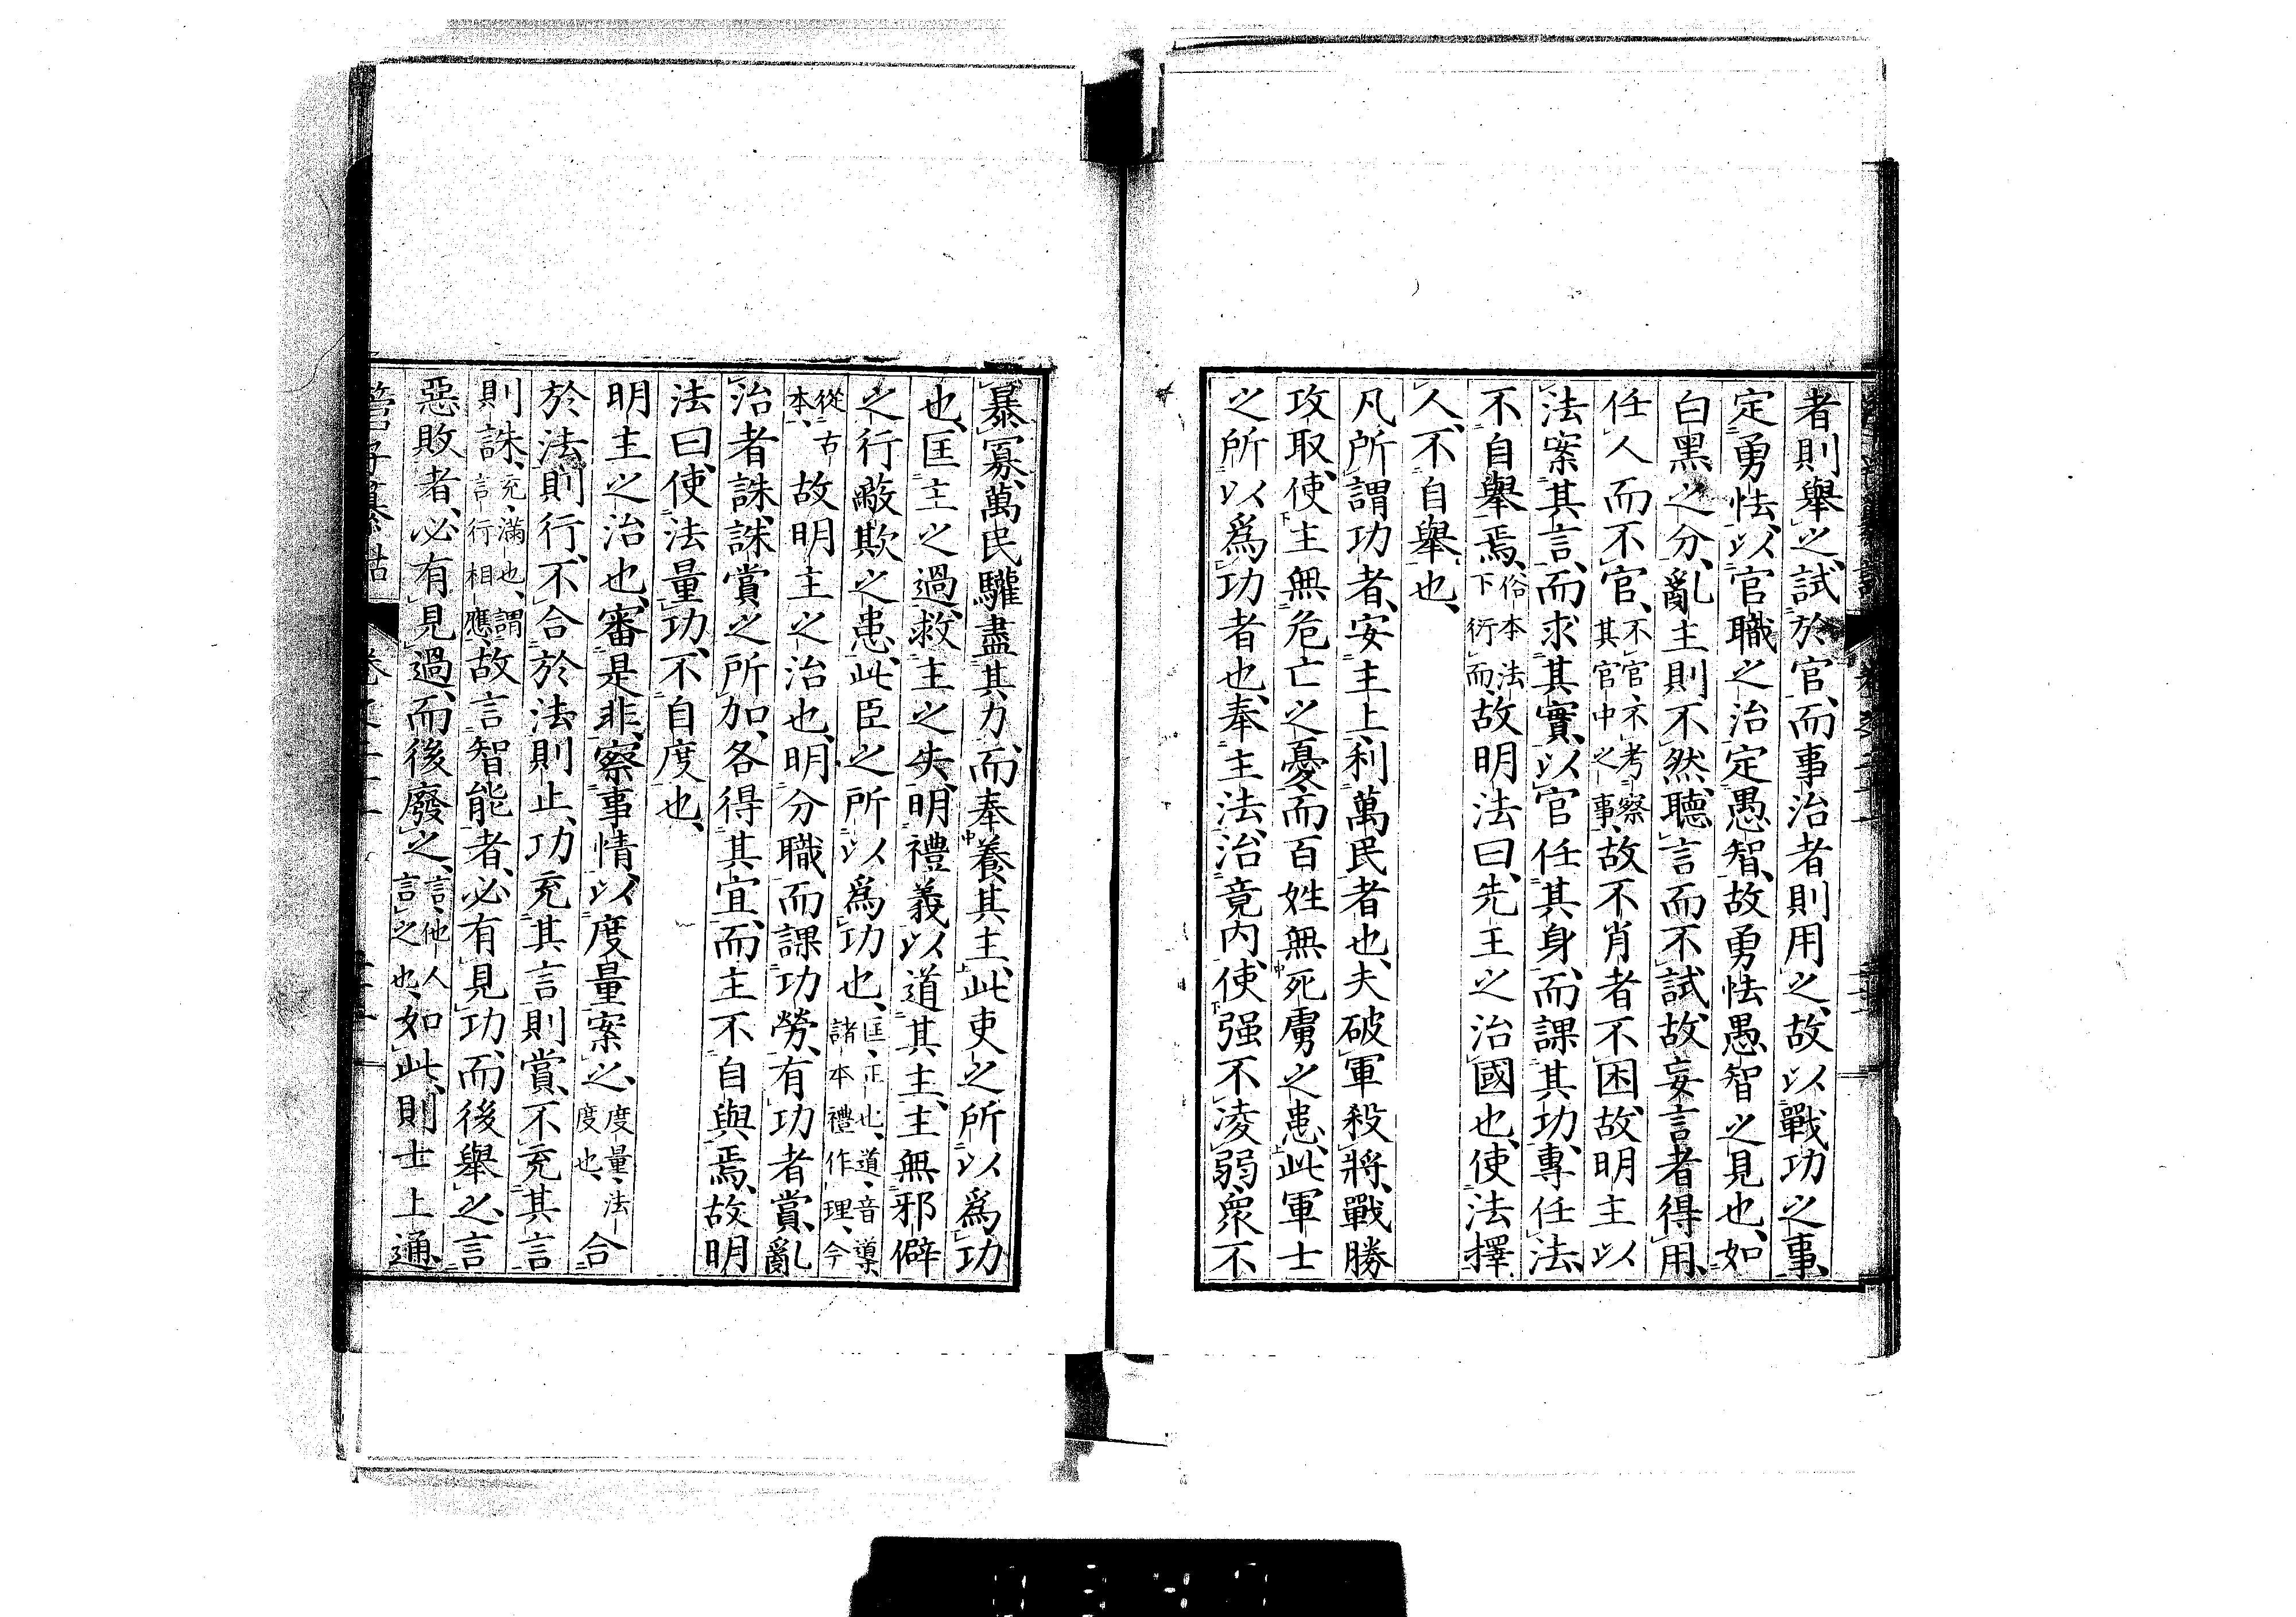 者則舉之、試於官、而事治者則用之、故以戰功之事、
定勇怯、以官職之治定愚智、故勇怯愚智之見也、如
白黑之分、亂主則不然、聽言而不試、故妄言者得用、
任人而不官、不官、不考察其官中之事、故不肖者不困、故明主以
法案其言、而求其實、以官任其身、而課其功、專任法、
不自舉焉、俗本法下衍而、故明法曰、先王之治國也、使法擇
人、不自舉也、
凡所謂功者、安主上、利萬民者也、夫破軍殺將、戰勝
攻取、使主無危亡之憂、而百姓無死虜之患、此軍士
之所以爲功者也、奉主法、治竟內、使强不凌弱、衆不
暴寡、萬民驩盡其力、而奉養其主、此吏之所以爲功
也、匡主之過、救主之失、明禮義以道其主、主無邪僻
之行蔽欺之患、此臣之所以爲功也、匡、正也、道、音導、諸本禮作理、今
從古本、故明主之治也、明分職而課功勞、有功者賞、亂
治者誅、誅賞之所加、各得其宜、而主不自與焉、故明
法曰、使法量功、不自度也、
明主之治也、審是非、察事情、以度量案之、度量、法度也、合
於法則行、不合於法則止、功充其言則賞、不充其言
則誅、充、滿也、謂言行相應、故言智能者、必有見功、而後舉之、言
惡敗者、必有見過、而後廢之、言、他人言之也、如此、則士上通、
管子纂詁 卷之二十一